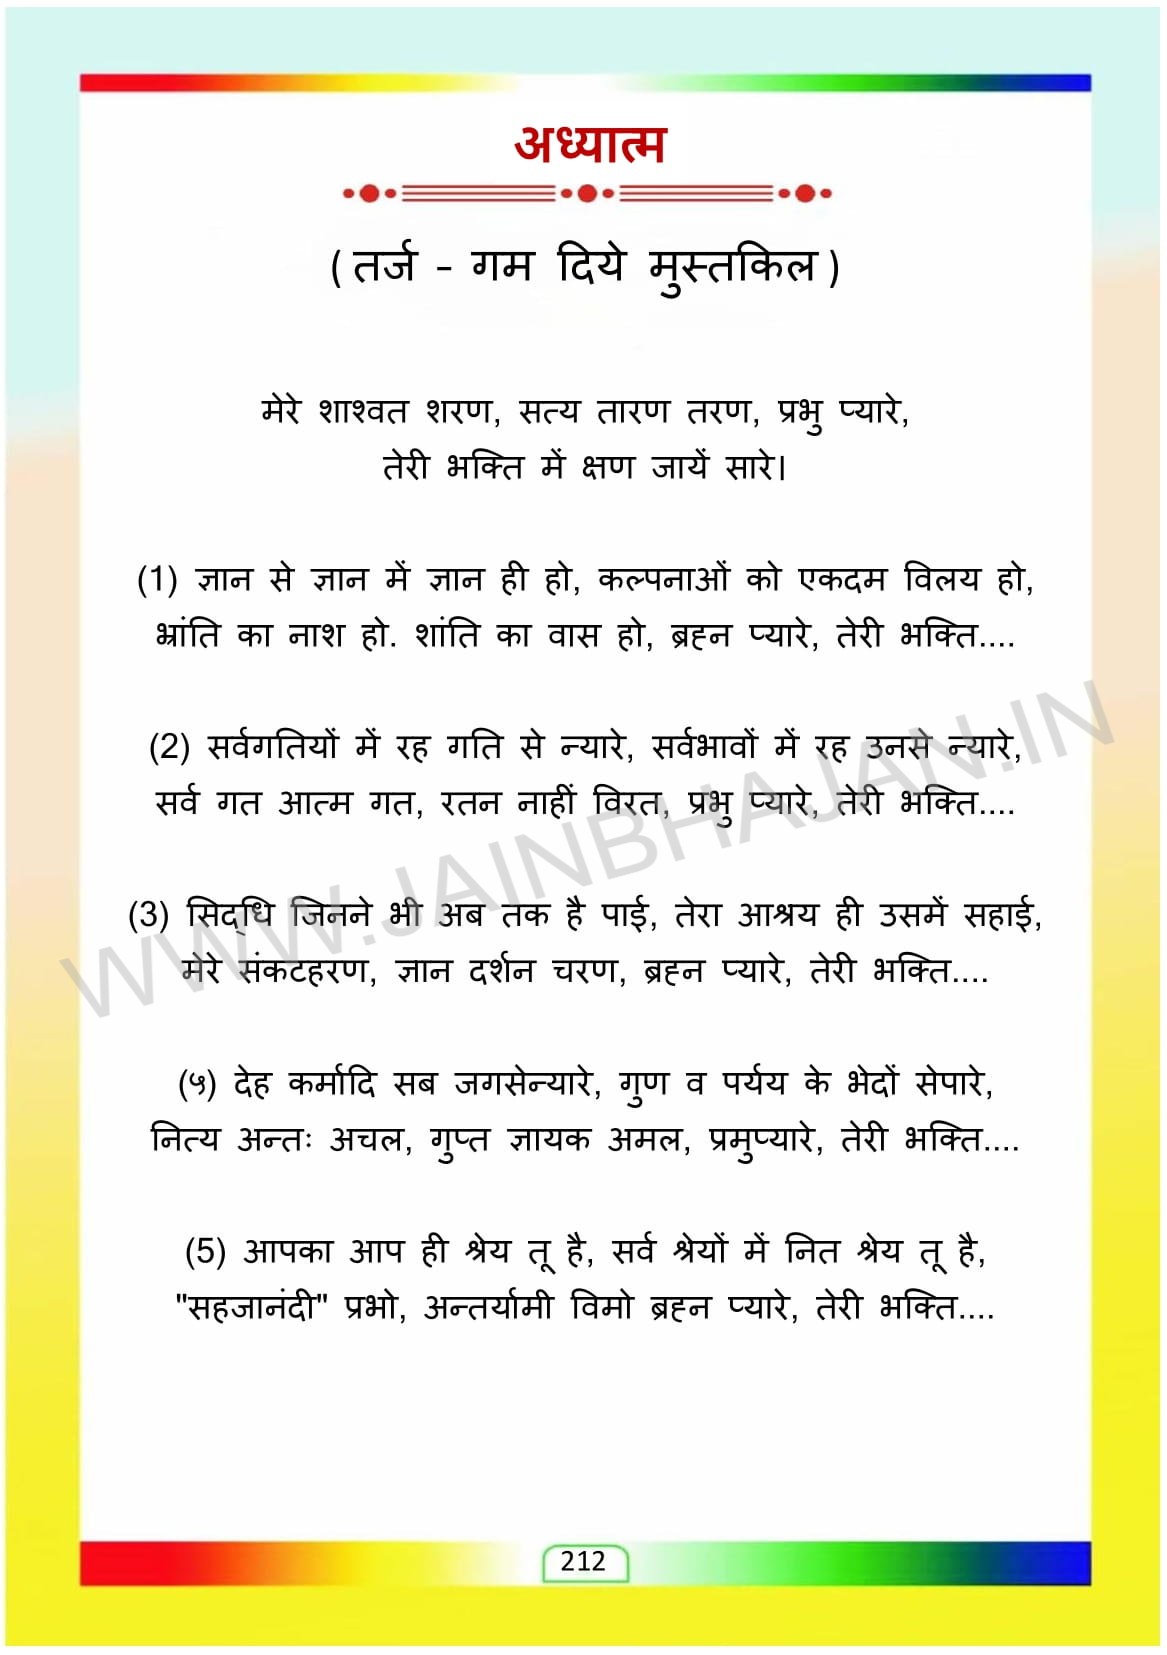 अध्यात्म
( तर्ज - गम दिये मुस्तकिल )
मेरे शाश्वत शरण, सत्य तारण तरण, प्रभु प्यारे,
तेरी भक्ति में क्षण जायें सारे।
(1) ज्ञान से ज्ञान में ज्ञान ही हो, कल्पनाओं को एकदम विलय हो,
भ्रांति का नाश हो. शांति का वास हो, ब्रह्न प्यारे, तेरी भक्ति....
(2) सर्वगतियों में रह गति से न्यारे, सर्वभावों में रह उनसे न्यारे,
सर्व गत आत्म गत, रतन नाहीं विरत, प्रभु प्यारे, तेरी भक्ति....
(3) सिद्धि जिनने भी अब तक है पाई, तेरा आश्रय ही उसमें सहाई,
मेरे संकटहरण, ज्ञान दर्शन चरण, ब्रह्न प्यारे, तेरी भक्ति....
(५) देह कर्मादि सब जगसेन्यारे, गुण व पर्यय के भेदों सेपारे,
नित्य अन्तः अचल, गुप्त ज्ञायक अमल, प्रमुप्यारे, तेरी भक्ति....
(5) आपका आप ही श्रेय तू है, सर्व श्रेयों में नित श्रेय तू है,
"सहजानंदी" प्रभो, अन्तर्यामी विमो ब्रह्न प्यारे, तेरी भक्ति....
WWW.JAINBHAJAN.IN
212